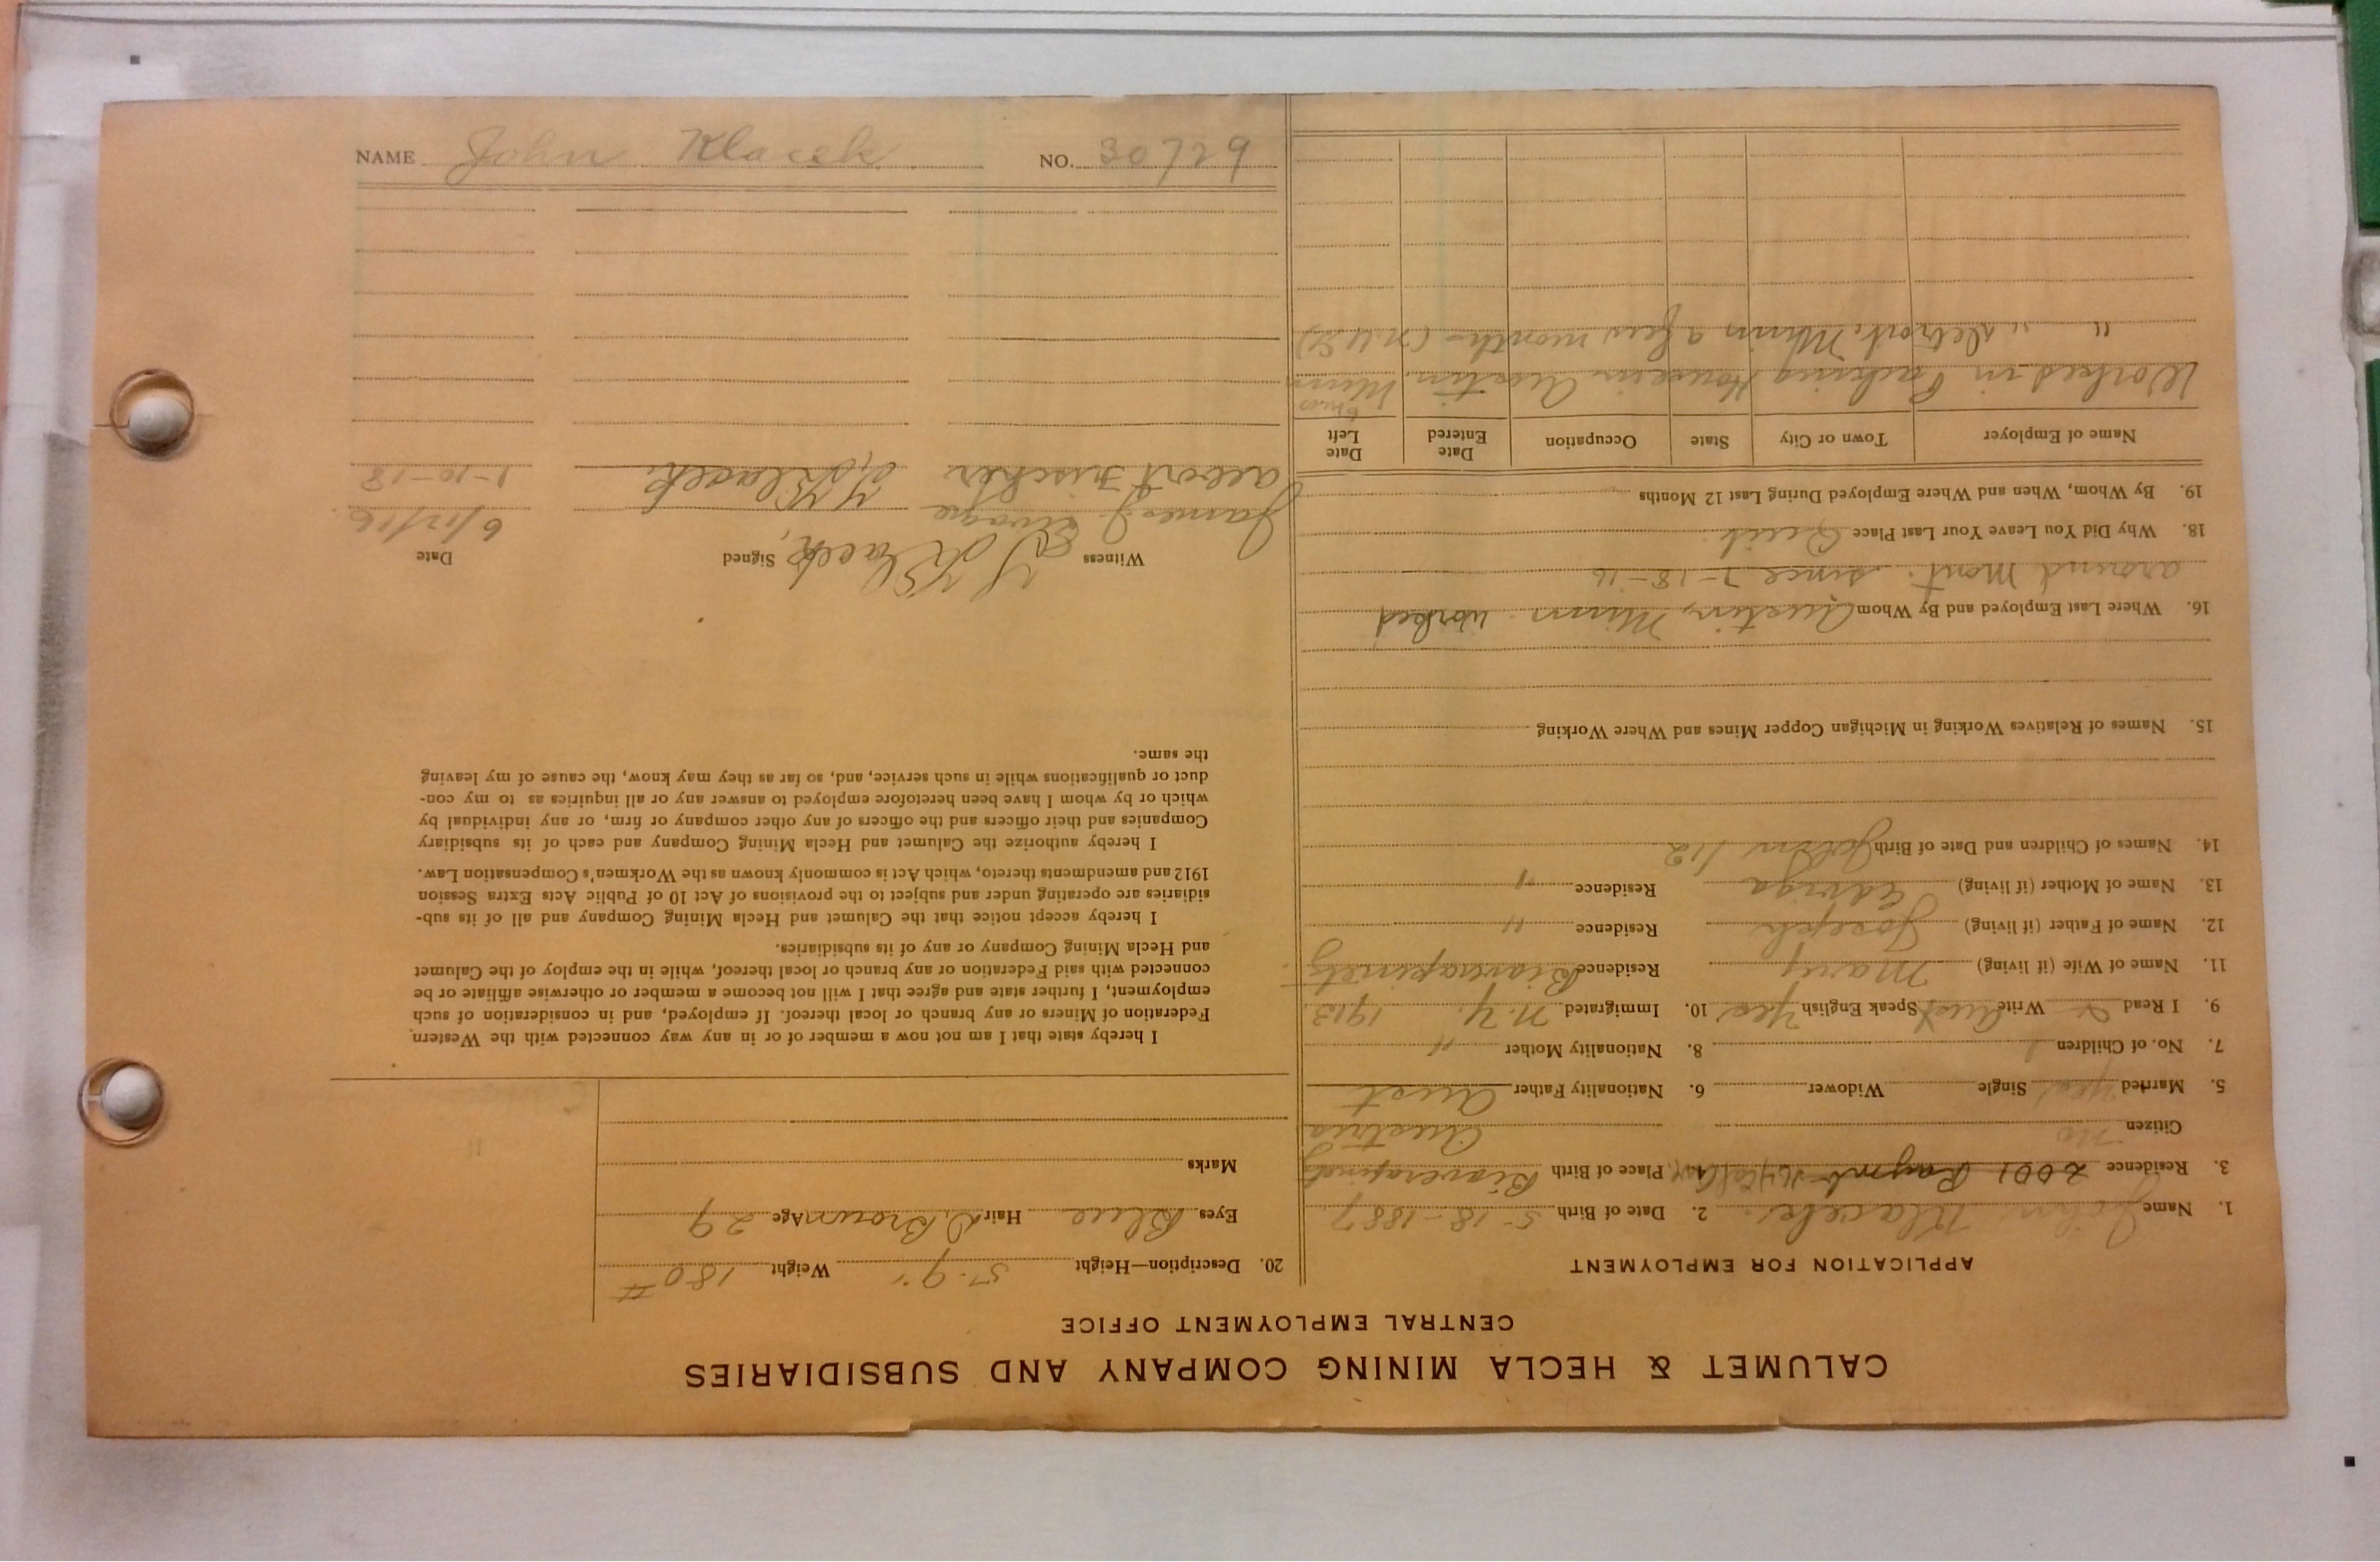 CALUMET & HECLA MINING COMPANY AND SUBSIDIARIES
CENTRAL EMPLOYMENT OFFICE
APPLICATION FOR EMPLOYMENT
1. Name John Klacek. 2. Date of Birth 5-18-1887.
3. Residence 2001 Place of Birth
Citizen no Austria
5. Married Yes Single Widower 6. Nationality Father Aust
7. No. of Children 1 8. Nationality Mother "
9. I Read Write Aust Speak English Yes 10. Immigrated N.Y. 1913.
11. Name of Wife (if living) Mary Residence
12. Name of Father (if living) Joseph Residence "
13. Name of Mother (if living) Residence "
14. Names of Children and Date of Birth John
15. Names of Relatives Working in Michigan Copper Mines and Where Working
16. Where Last Employed and By Whom Austin, Minn. worked
around Mont. since 7-18-16
18. Why Did You Leave Your Last Place Quit.
19. By Whom, When and Where Employed During Last 12 Months
Name of Employer Town or City State Occupation Date Entered Date Left
Worked in Packing House in Austin, Minn 6 mos
" " Detroit, Minn a few months
20. Description—Height 5'-9" Weight 180 #
Eyes Blue Hair D. Brown Age 29
Marks
I hereby state that I am not now a member of or in any way connected with the Western
Federation of Miners or any branch or local thereof. If employed, and in consideration of such
employment, I further state and agree that I will not become a member or otherwise affiliate or be
connected with said Federation or any branch or local thereof, while in the employ of the Calumet
and Hecla Mining Company or any of its subsidiaries.
I hereby accept notice that the Calumet and Hecla Mining Company and all of its sub-
sidiaries are operating under and subject to the provisions of Act 10 of Public Acts Extra Session
1912 and amendments thereto, which Act is commonly known as the Workmen's Compensation Law.
I hereby authorize the Calumet and Hecla Mining Company and each of its subsidiary
Companies and their officers and the officers of any other company or firm, or any individual by
which or by whom I have been heretofore employed to answer any or all inquiries as to my con-
duct or qualifications while in such service, and, so far as they may know, the cause of my leaving
the same.
Witness Signed Date
James J. 6/12/16.
Albert Fischer J. Klacek. 1-10-18
NAME John Klacek NO. 30729